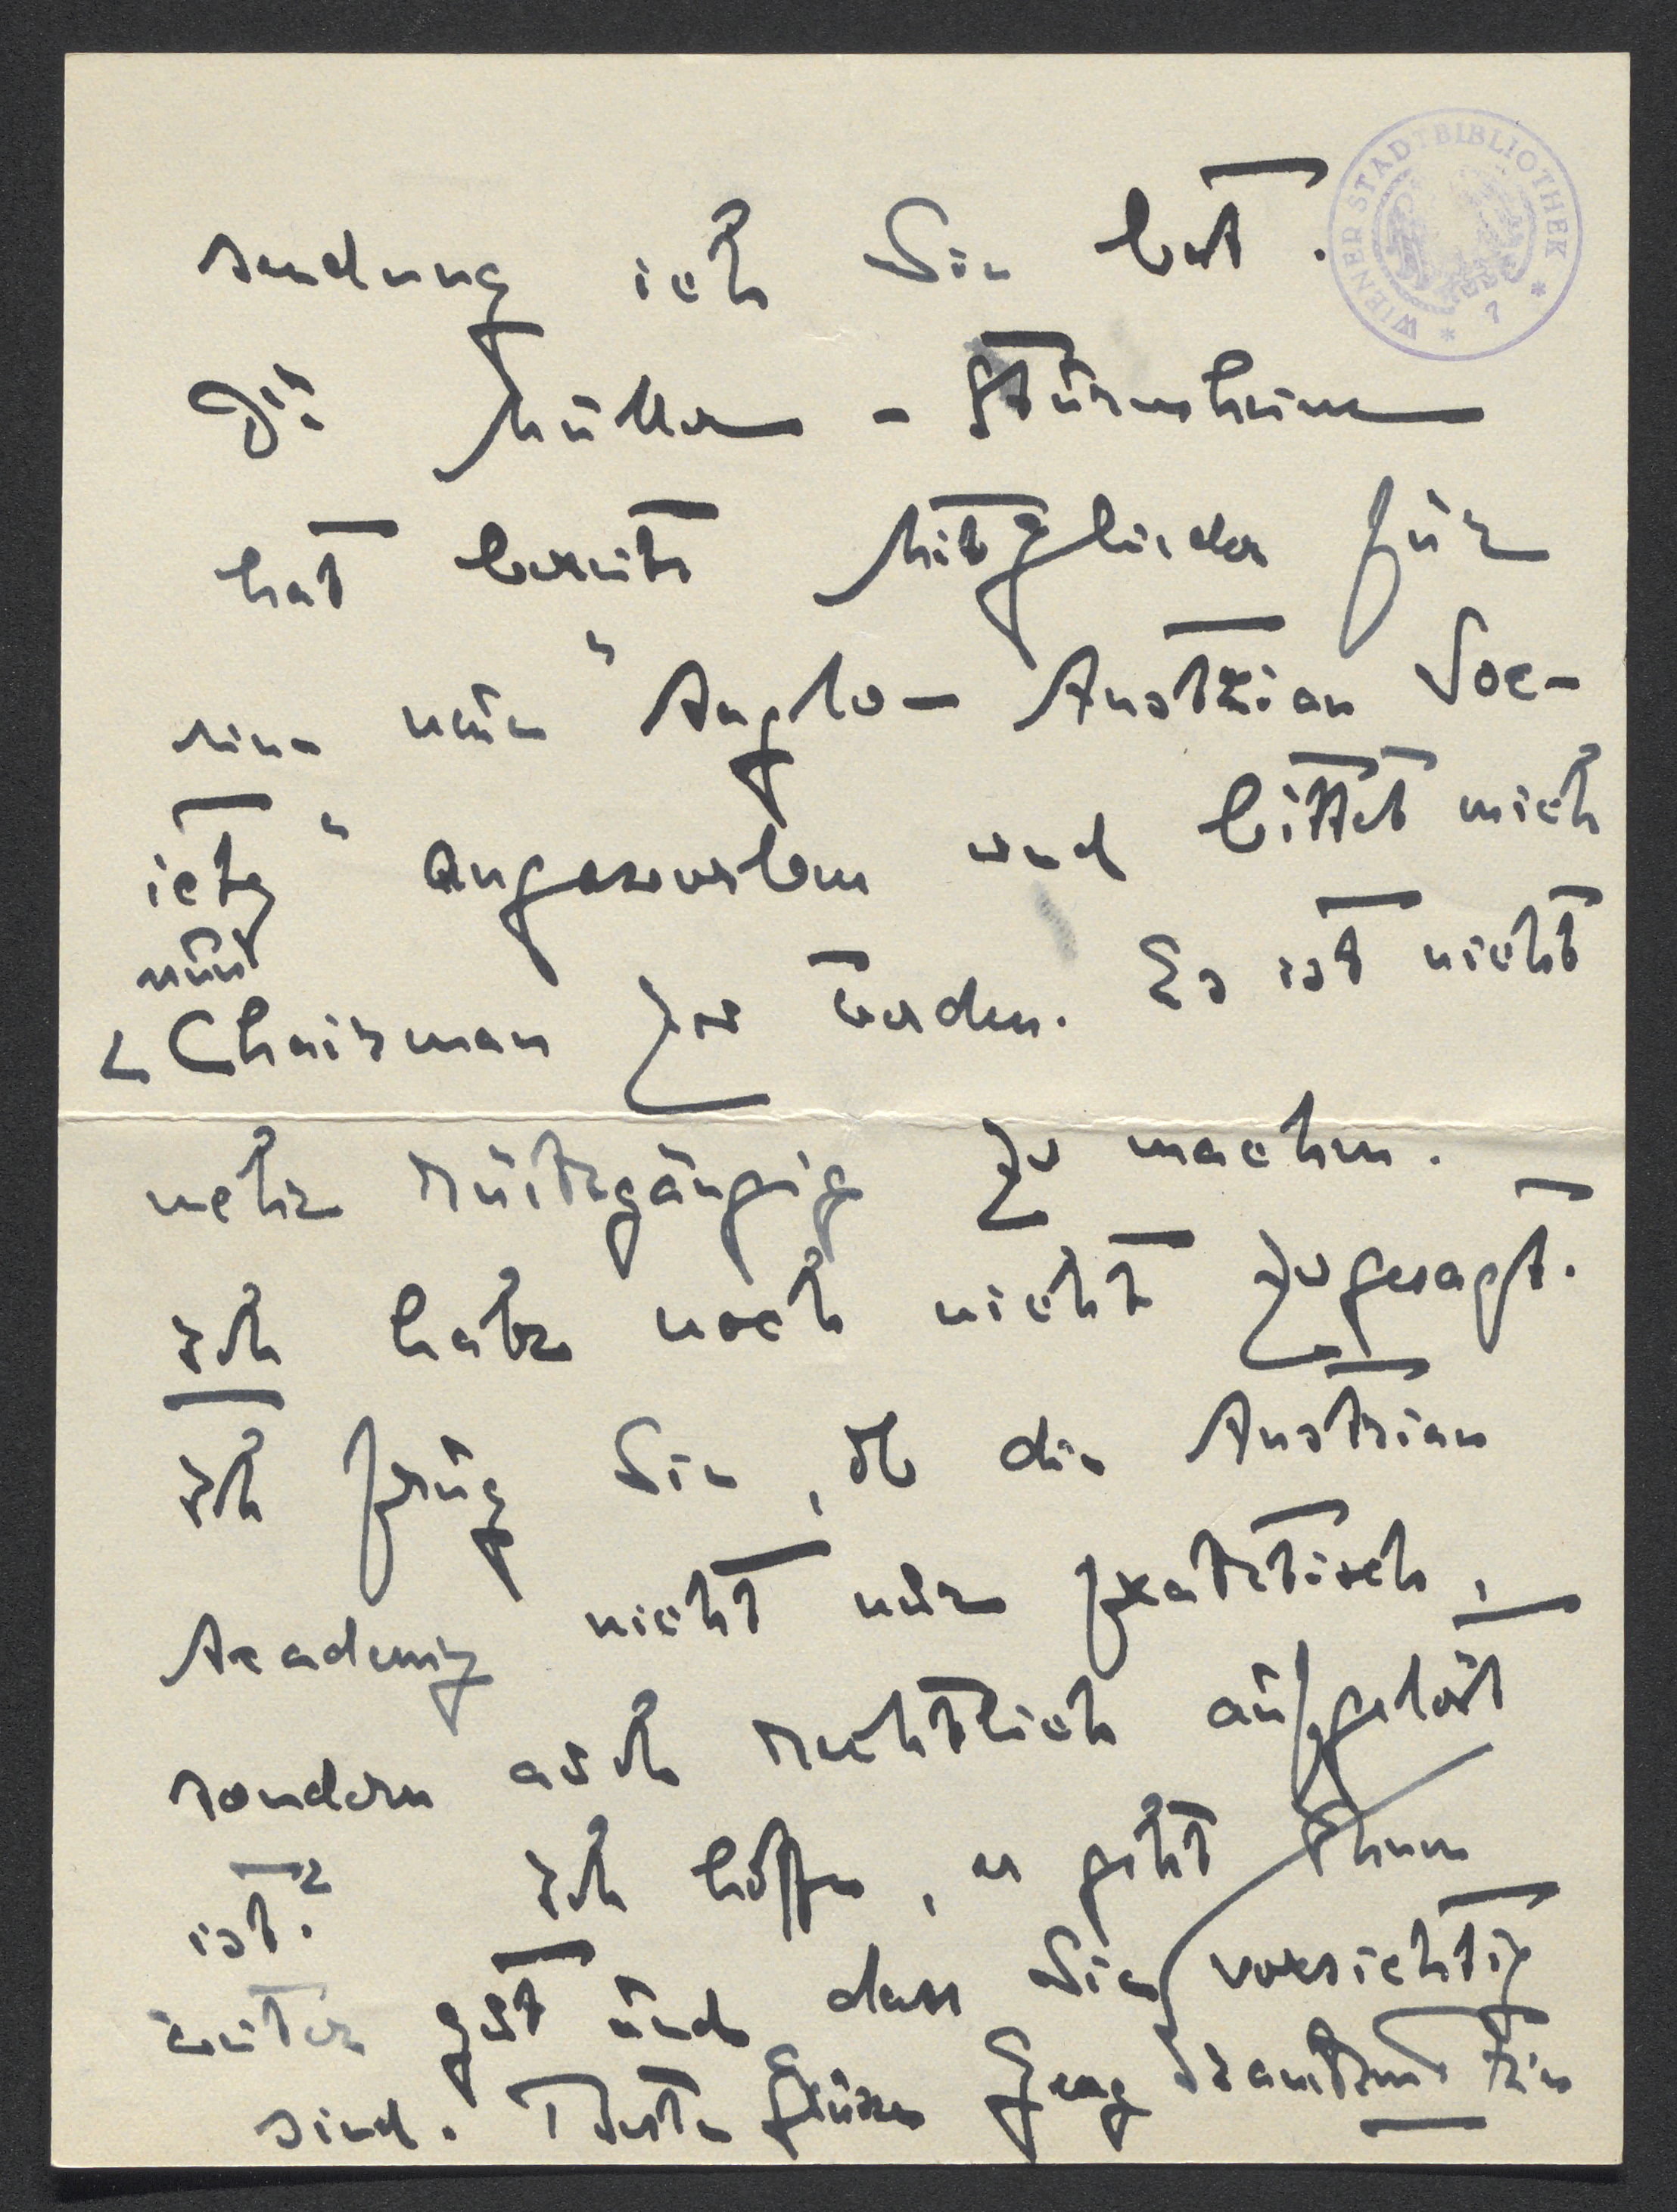 WIENER STADTBIBLIOTHEK * 7 *
sendung ich Sie bat.
Dr Müller-Sturmheim
hat bereits Mitglieder für
eine neue "Anglo-Austrian Soc-
iety" angeworben und bittet mich
nun
Chairman zu werden. Es ist nicht
mehr rückgängig zu machen.
Ich habe noch nicht zugesagt.
Ich frug Sie, ob die Austrian
Academy nicht nur praktisch,
sondern auch rechtlich aufgelöst
ist? Ich hoffe, es geht Ihnen
weiter gut und dass Sie vorsichtig
sind. Beste Grüsse Georg Franckenstein